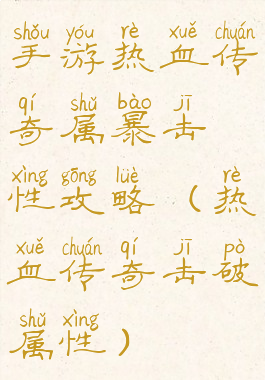 shǒu yóu rè xuě chuán
手游热血传
qí shǔ bào jī
奇属暴击
xìng gōng lüè rè
性攻略（热
xuě chuán qí jī pò
血传奇击破
shǔ xìng
属性）